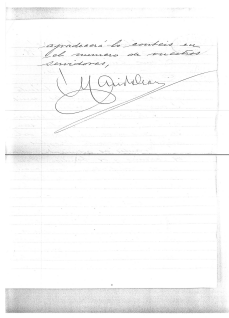 agradecerá lo contéis en
el número de vuestros
servidores,